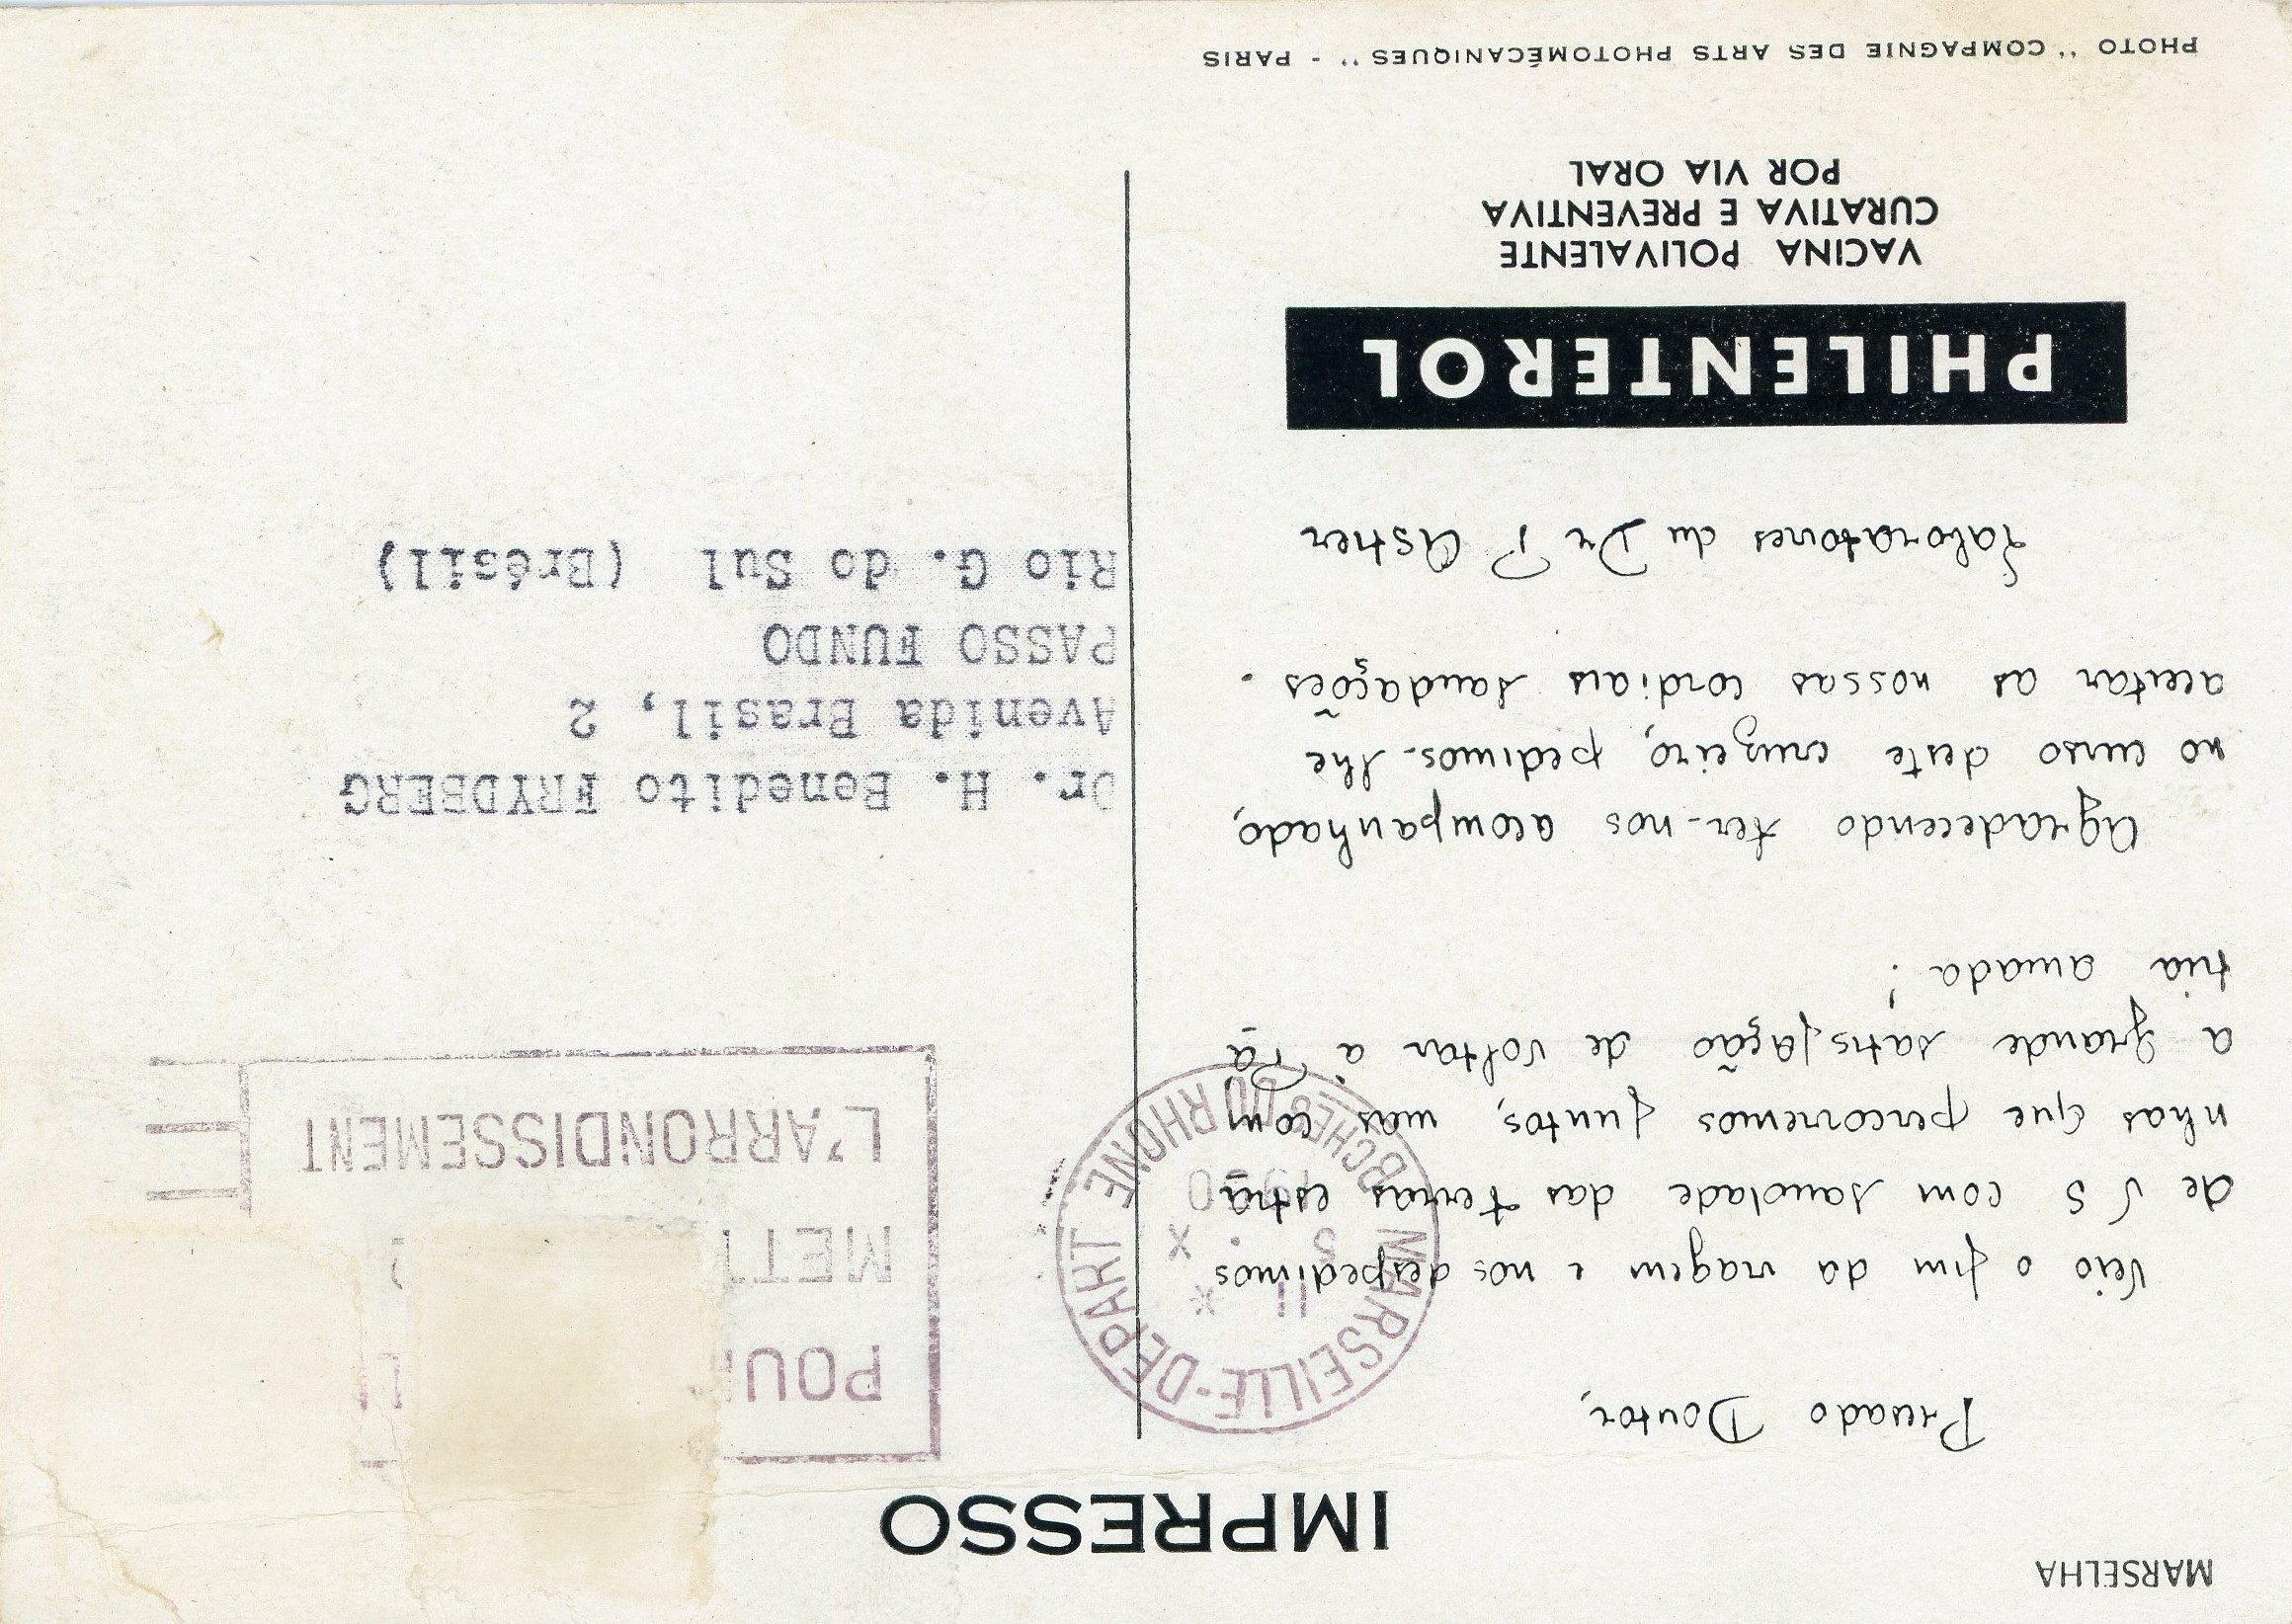 MARSELHA
IMPRESSO
Prezado Doutor,
Veio o fim da viagem e nos despedimos
de V S com saudade das terras estra
nhas que percorremos juntos, mas com
a grande satisfação de voltar à Pá
tria amada!
Agradecendo ter-nos acompanhado,
no curso deste cruzeiro, pedimos-lhe
aceitar as nossas cordiais saudações.
Laboratoires du Dr P. Astier
PHILENTEROL
VACINA POLIVALENTE
CURATIVA E PREVENTIVA
POR VIA ORAL
PHOTO "COMPAGNIE DES ARTS PHOTOMÉCANIQUES" - PARIS
MARSEILLE-DEPART
BCHES DU RHONE
L'ARRONDISSEMENT
Dr. H. Benedito FRYDBERG
Avenida Brasil, 2
PASSO FUNDO
Rio G. do Sul (Brésil)